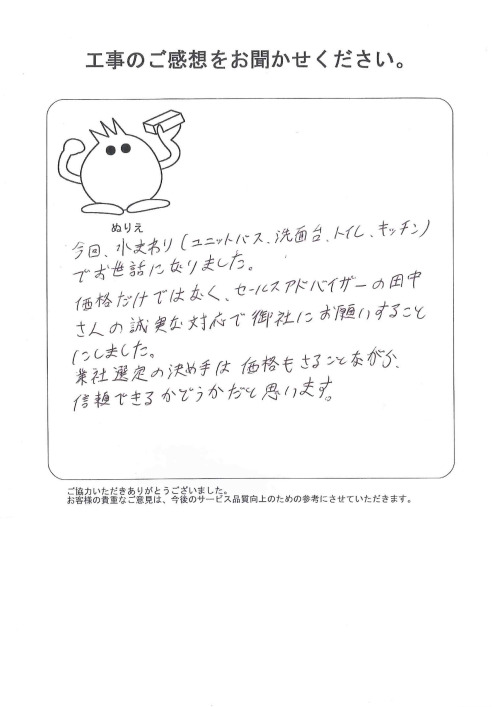 工事のご感想をお聞かせください。
ぬりえ
今回、水まわり(ユニットバス、洗面台、トイレ、キッチン)
でお世話になりました。
価格だけではなく、セールスアドバイザーの田中
さんの誠実な対応で御社にお願いすること
にしました。
業社選定の決め手は価格もさることながら、
信頼できるかどうかだと思います。
ご協力いただきありがとうございました。
お客様の貴重なご意見は、今後のサービス品質向上のための参考にさせていただきます。